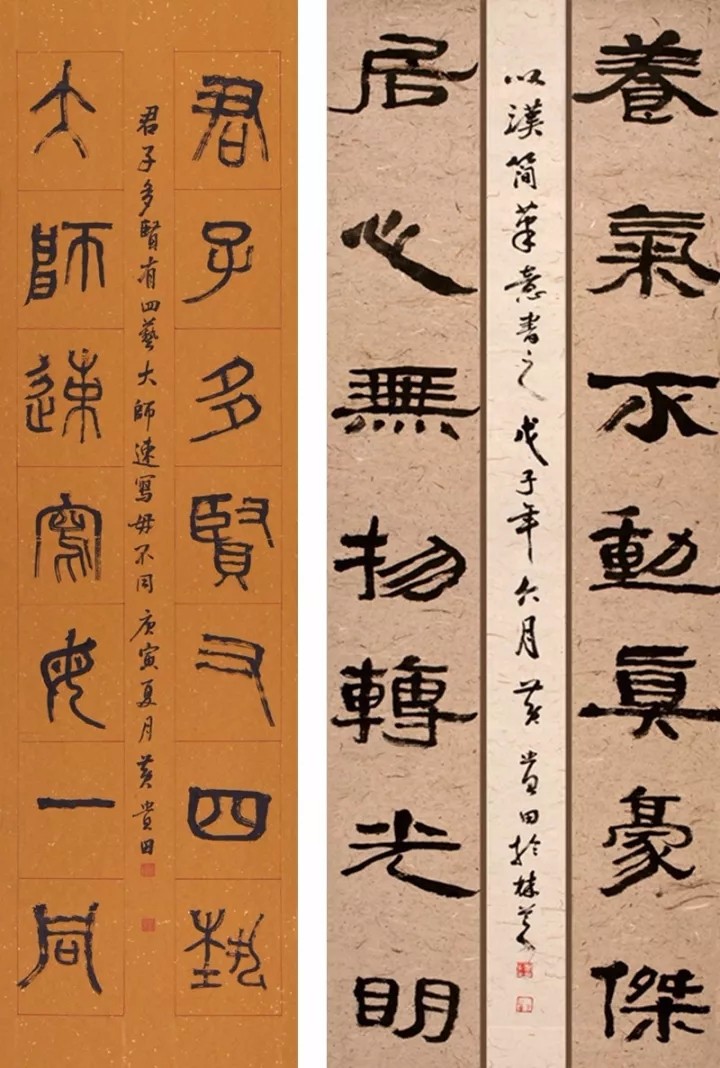 養氣不動眞豪傑
以漢簡筆意書之 戊子年六月 黃貴田於
居心無物轉光明
君子多賢又四埶
君子多賢有四藝大師速寫毋不同 庚寅夏月黃貴田
大師速寫毋一同